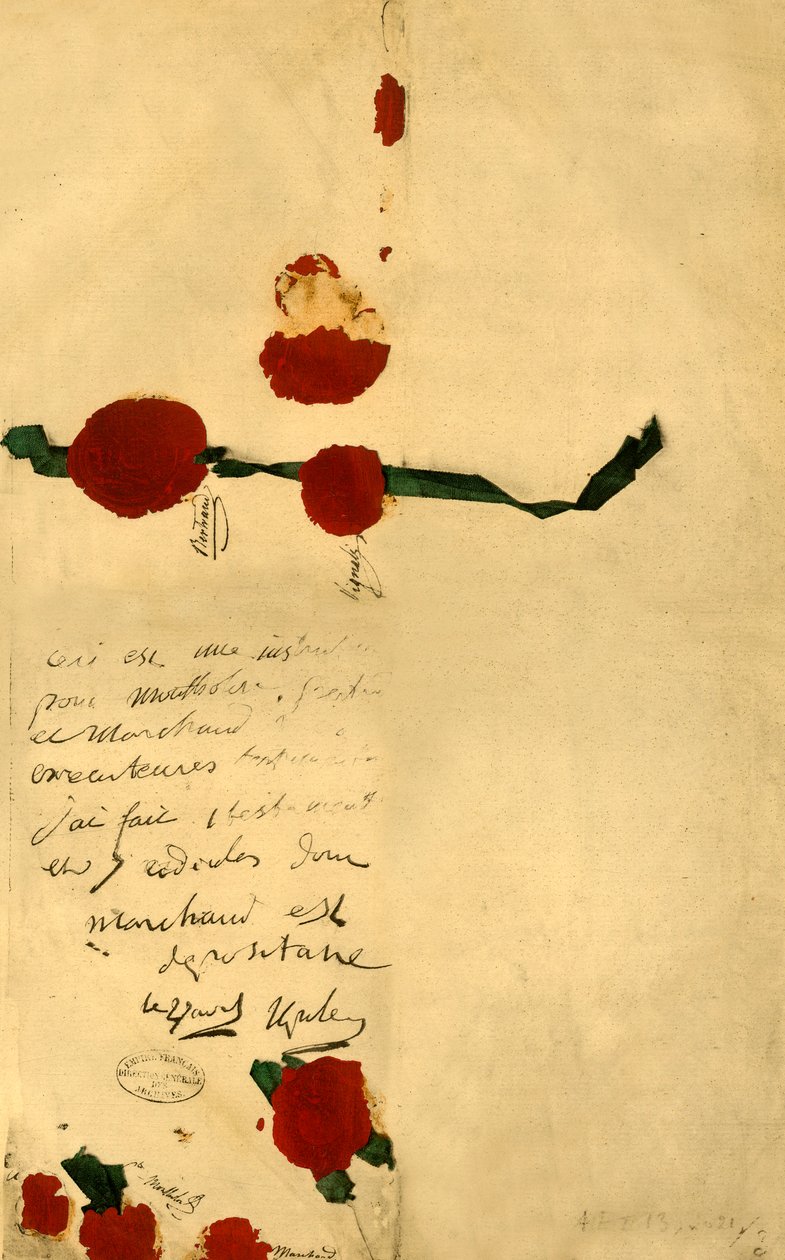 Bertrand
Vignali
Ceci est une instruction
pour Montholon, Bertrand
et Marchand
executeures testamentaires
j'ai fait 1 testament
et 7 codiciles dont
marchand est
depositaire
le 27 avril Napoleon
EMPIRE FRANÇAIS
DIRECTION GÉNÉRALE
DES
ARCHIVES.
Montholon
Marchand